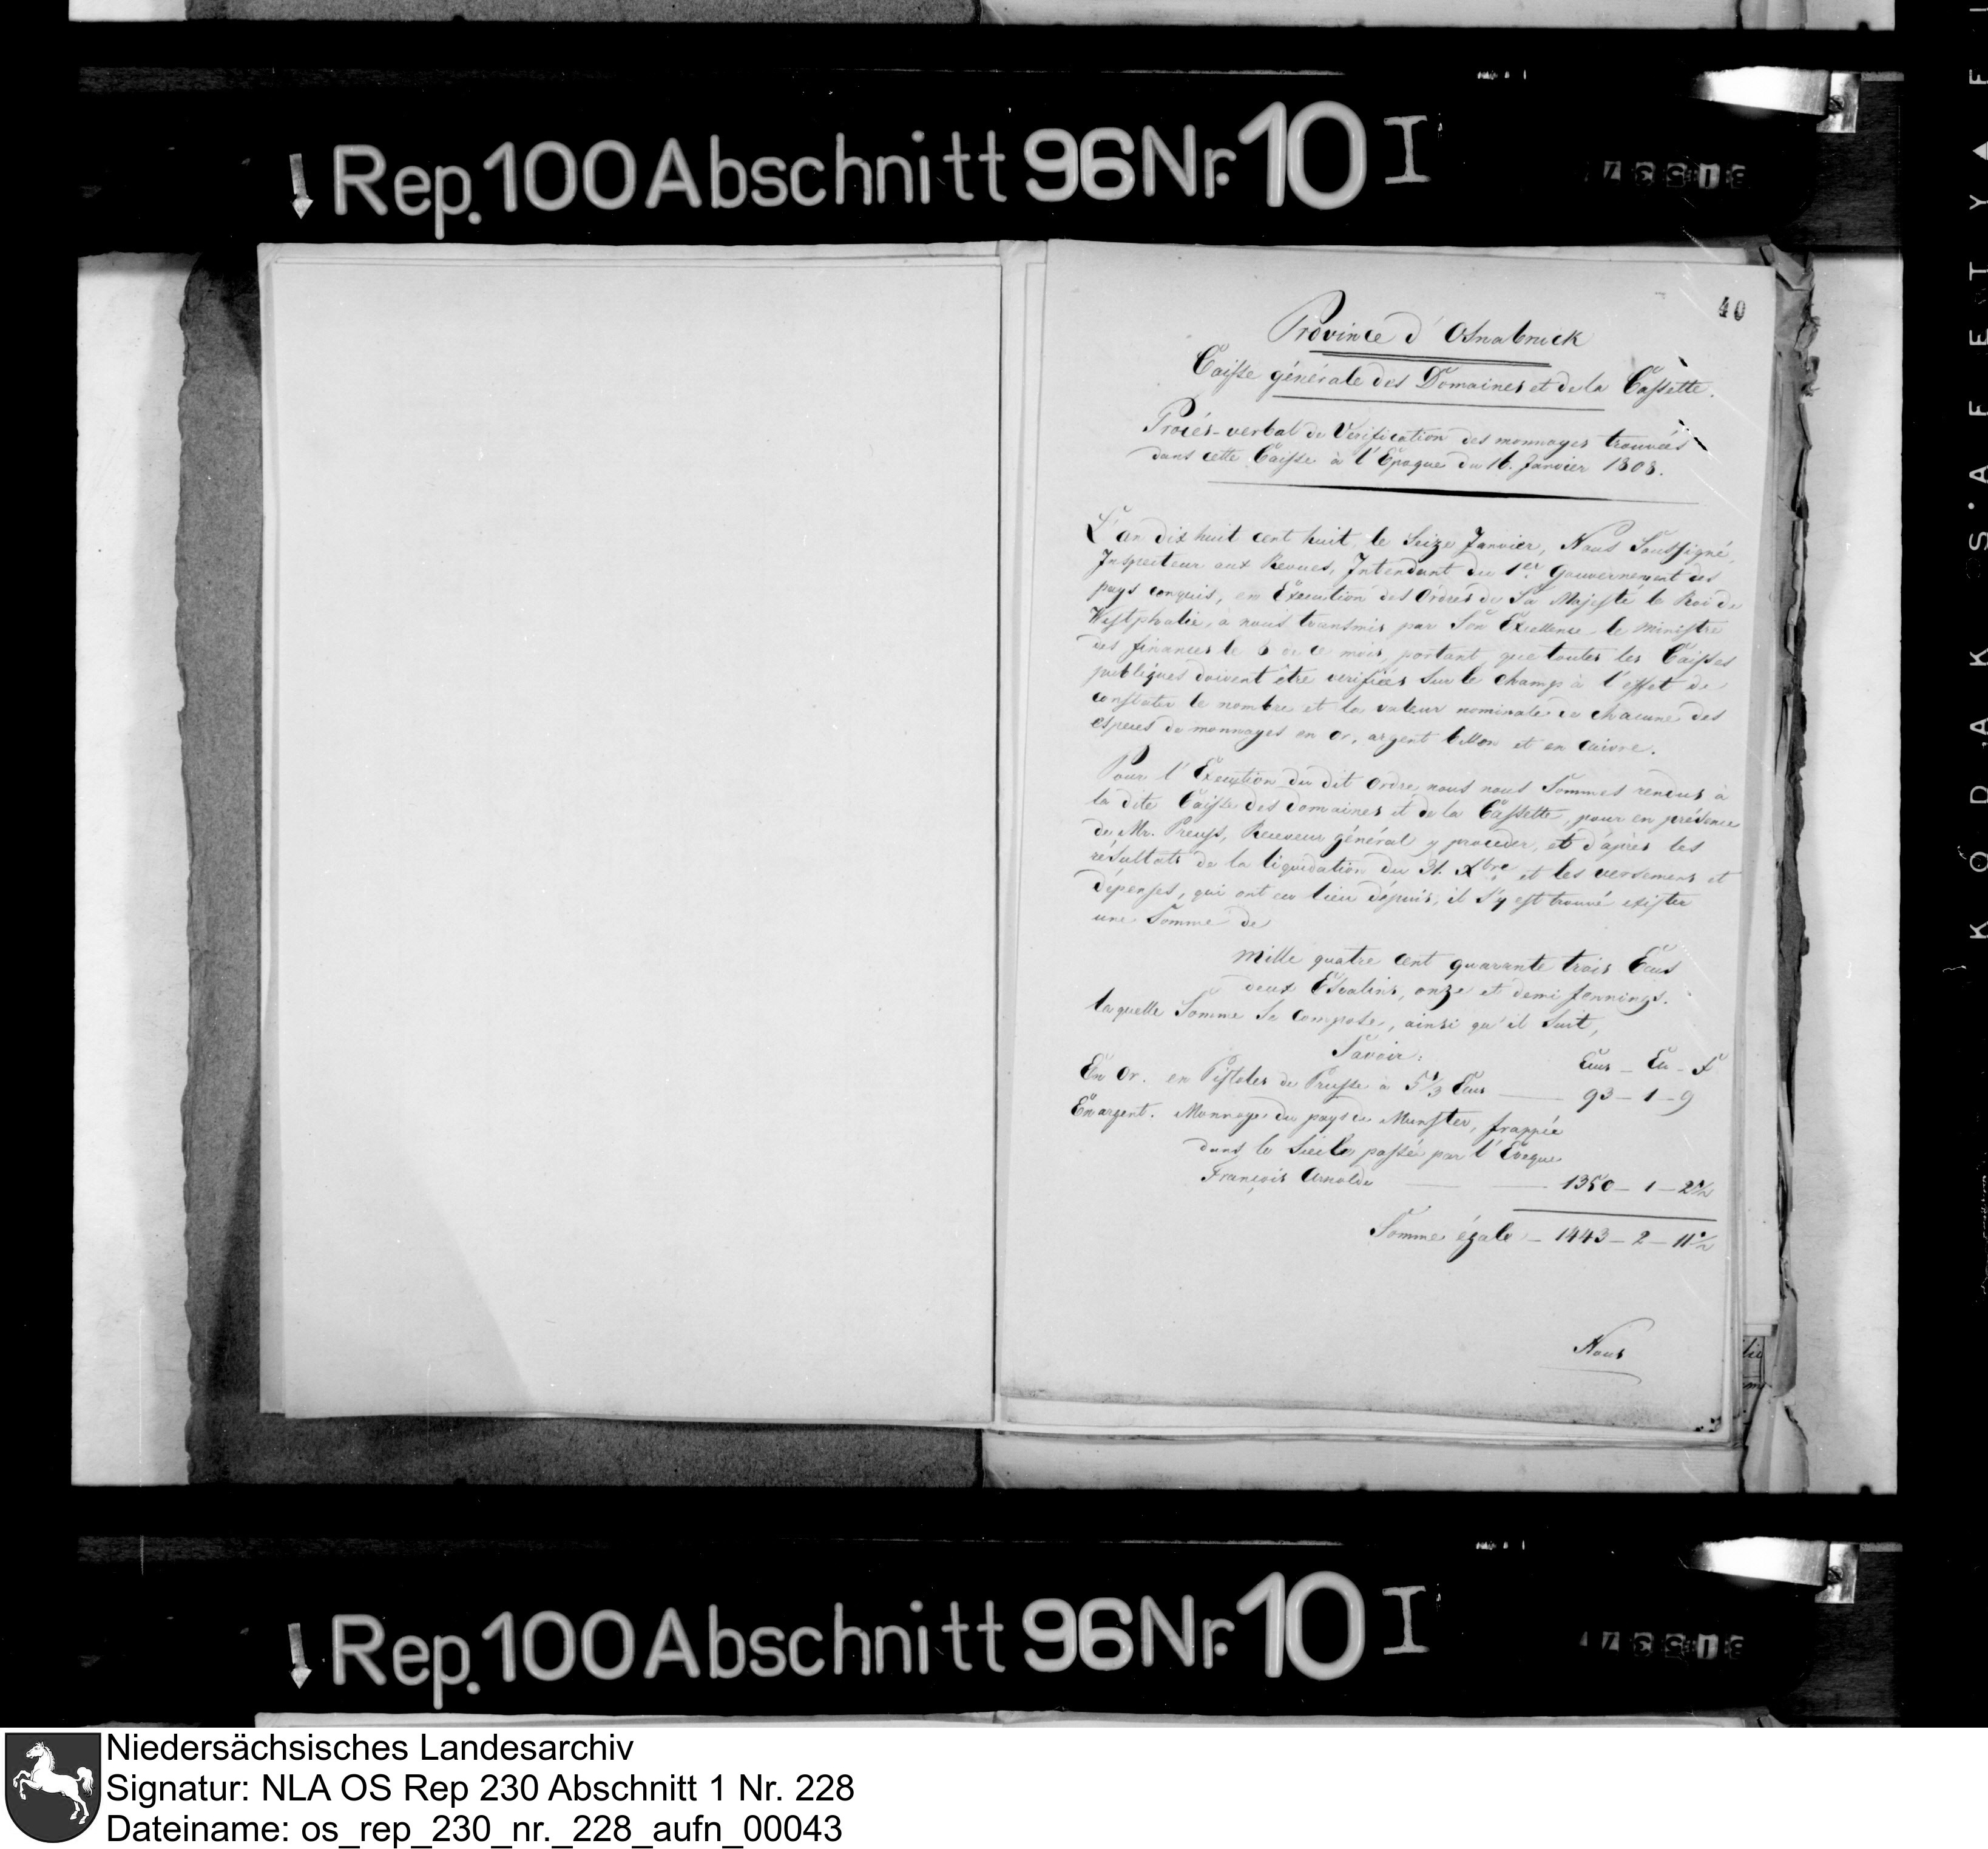 Rep. 100 Abschnitt 96 Nr. 10 I
40
Province d'Osnabruck
Caisse générale des Domaines et de la Cassette.
Procés-verbal de Vérification des monnayes trouvées
dans cette Caisse à l'Epoque du 16. Janvier 1808.
L'an dix huit cent huit le Seize Janvier, Nous Soussigné
Inspecteur aux Revues, Intendant du 1er Gouvernement des
pays conquis, en Execution des Ordres de Sa Majesté le Roi de
Westphalie, à nous transmis par Son Excellence le Ministre
des finances le 6 de ce mois, portant que toutes les Caisses
publiques doivent être verifiées sur le champ à l'effet de
constater le nombre et la valeur nominale de chacune des
especes de monnayes en or, argent billon et en Cuivre.
Pour l'Execution du dit Ordre, nous nous Sommes rendus à
la dite Caisse des domaines et de la Cassette, pour en présence
de Mr. Preuss, Receveur général y proceder, et d'après les
résultats de la liquidation du 31. Xbre et les versemens et
dépenses, qui ont eu lieu dépuis, il s'y est trouvé exister
une Somme de
Mille quatre cent quarante trois Ecus
deux Escalins, onze et demi fennings.
laquelle Somme se compose, ainsi qu'il suit,
Savoir:
Ecus - Es - f
En Or. en Pistoles de Prusse à 5 1/3 Ecus — 93 - 1 - 9
En argent. Monnayes du pays de Munster, frappée
dans le Siécle passé par l'Eveque
François Arnolde — — 1350 - 1 - 2 1/2
Somme égale - 1443 - 2 - 11 1/2
Nous
Rep. 100 Abschnitt 96 Nr. 10 I
KODAK SAFETY
Niedersächsisches Landesarchiv
Signatur: NLA OS Rep 230 Abschnitt 1 Nr. 228
Dateiname: os_rep_230_nr._228_aufn_00043